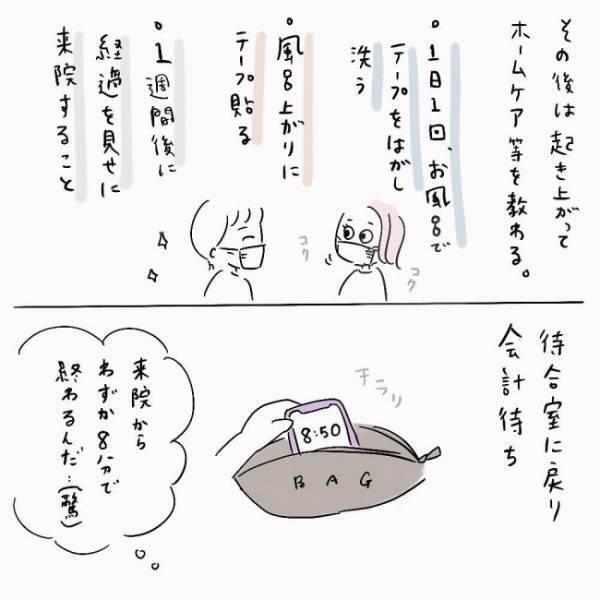 その後は起き上がって
ホームケア等を教わる。
・1日1回、お風呂で
テープをはがし
洗う
・風呂上がりに
テープ貼る
・1週間後に
経過を見せに
来院すること
コク
コク
待合室に戻り
会計待ち
チラリ
8:50
BAG
来院から
わずか8分で
終わるんだ…(驚)